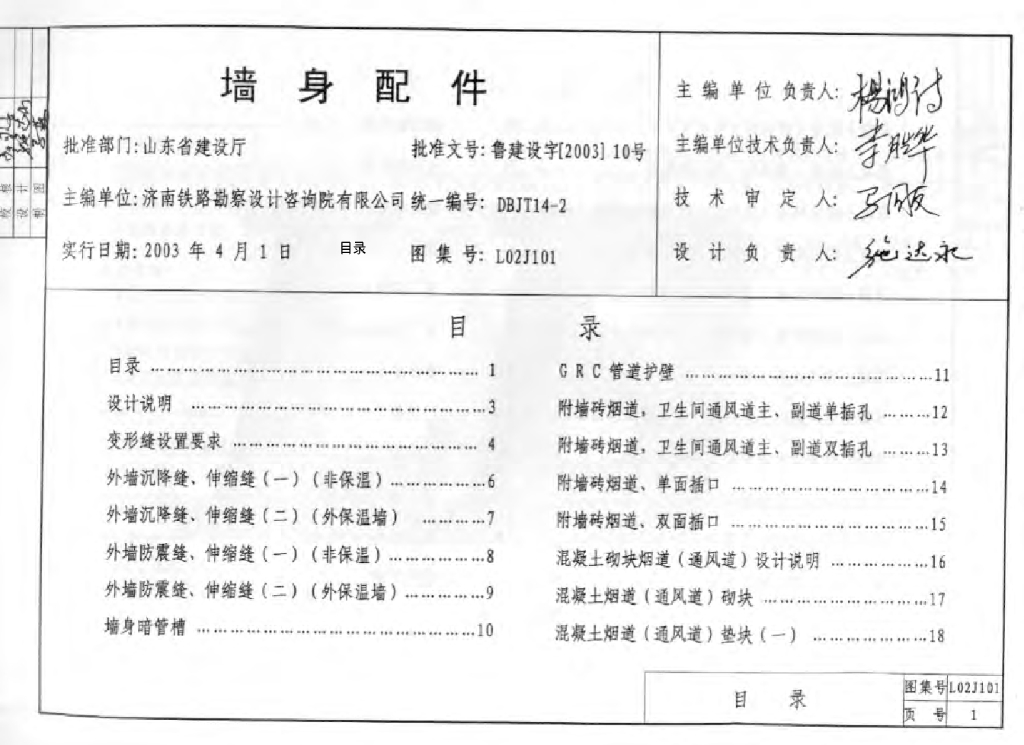 墙身配件
批准部门:山东省建设厅
批准文号:鲁建设字[2003] 10号
主编单位:济南铁路勘察设计咨询院有限公司
统一编号: DBJT14-2
实行日期: 2003 年 4 月 1 日
目录
图集号: L02J101
主编单位负责人:
主编单位技术负责人:
技术审定人:
设计负责人:
目 录
目录 ………………………………… 1
设计说明 ………………………………3
变形缝设置要求 ………………………… 4
外墙沉降缝、伸缩缝(一)(非保温)…………6
外墙沉降缝、伸缩缝(二)(外保温墙) ………7
外墙防震缝、伸缩缝(一)(非保温)…………8
外墙防震缝、伸缩缝(二)(外保温墙)…………9
墙身暗管槽 ……………………………10
GRC管道护壁 ………………………11
附墙砖烟道、卫生间通风道主、副道单插孔 ………12
附墙砖烟道、卫生间通风道主、副道双插孔 ………13
附墙砖烟道、单面插口 …………………14
附墙砖烟道、双面插口 …………………15
混凝土砌块烟道(通风道)设计说明 …………16
混凝土烟道(通风道)砌块 ………………17
混凝土烟道(通风道)垫块(一) …………18
目 录
图集号 L02J101
页 号 1